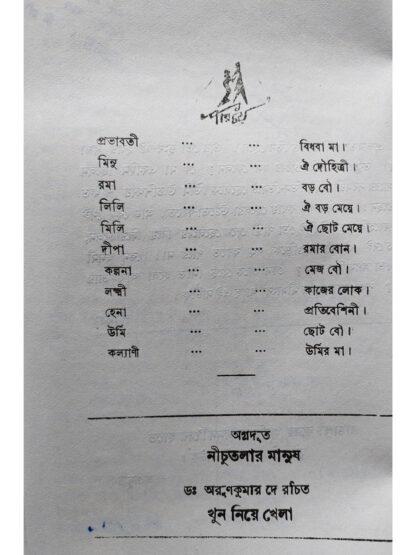 পরিচয়
প্রভাবতী ... ... বিধবা মা।
মিনু ... ... ঐ দৌহিত্রী।
রমা ... ... বড় বৌ।
লিলি ... ... ঐ বড় মেয়ে।
মিলি ... ... ঐ ছোট মেয়ে।
দীপা ... ... রমার বোন।
কল্পনা ... ... মেজ বৌ।
লক্ষ্মী ... ... কাজের লোক।
হেনা ... ... প্রতিবেশিনী।
উর্মি ... ... ছোট বৌ।
কল্যাণী ... ... উর্মির মা।
অগ্রদূত
নীচুতলার মানুষ
ডঃ অরুণকুমার দে রচিত
খুন নিয়ে খেলা